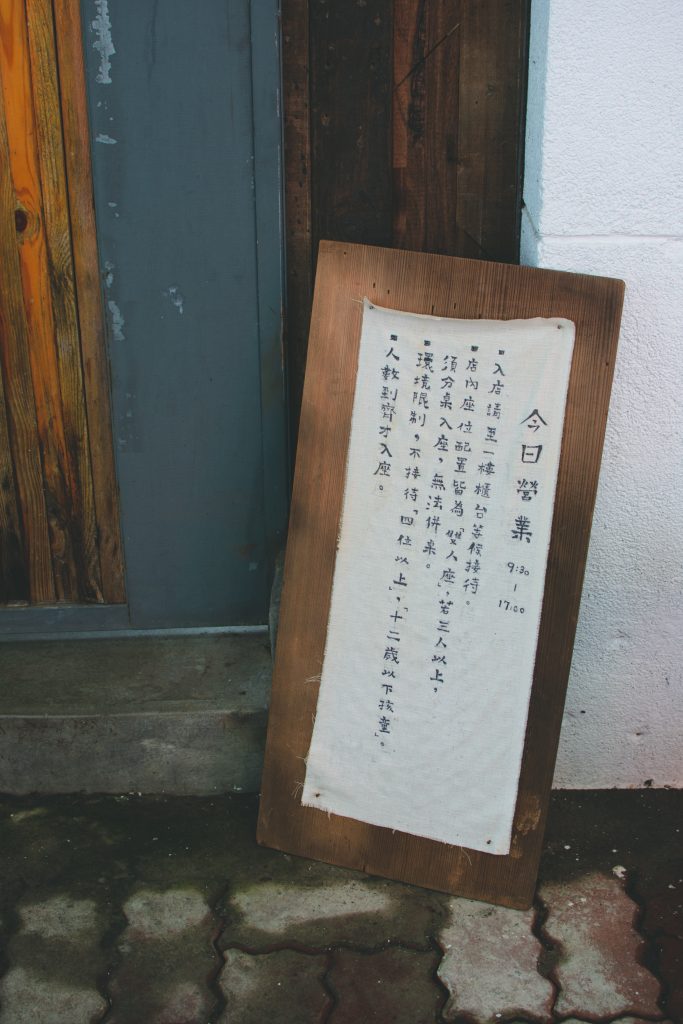 今日營業 9:30 - 17:00
▪入店請至一樓櫃台等候接待。
▪店內座位配置皆為「雙人座」,若三人以上,
須分桌入座,無法併桌。
▪環境限制,不接待「四位以上」,「十二歲以下孩童」。
▪人數到齊才入座。